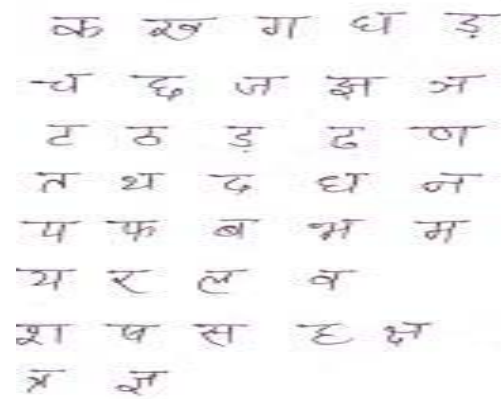 क ख ग घ ड़
च छ ज झ ञ
ट ठ ड़ ढ ण
त थ द ध न
प फ ब भ म
य र ल व
श ष स ह क्ष
त्र ज्ञ